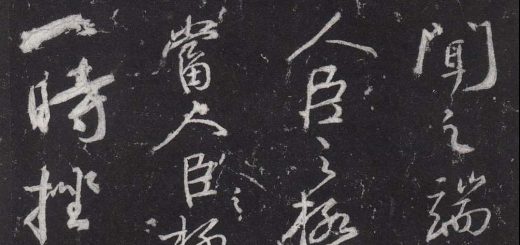 聞之端
人臣之極
當人臣之極
一時挫